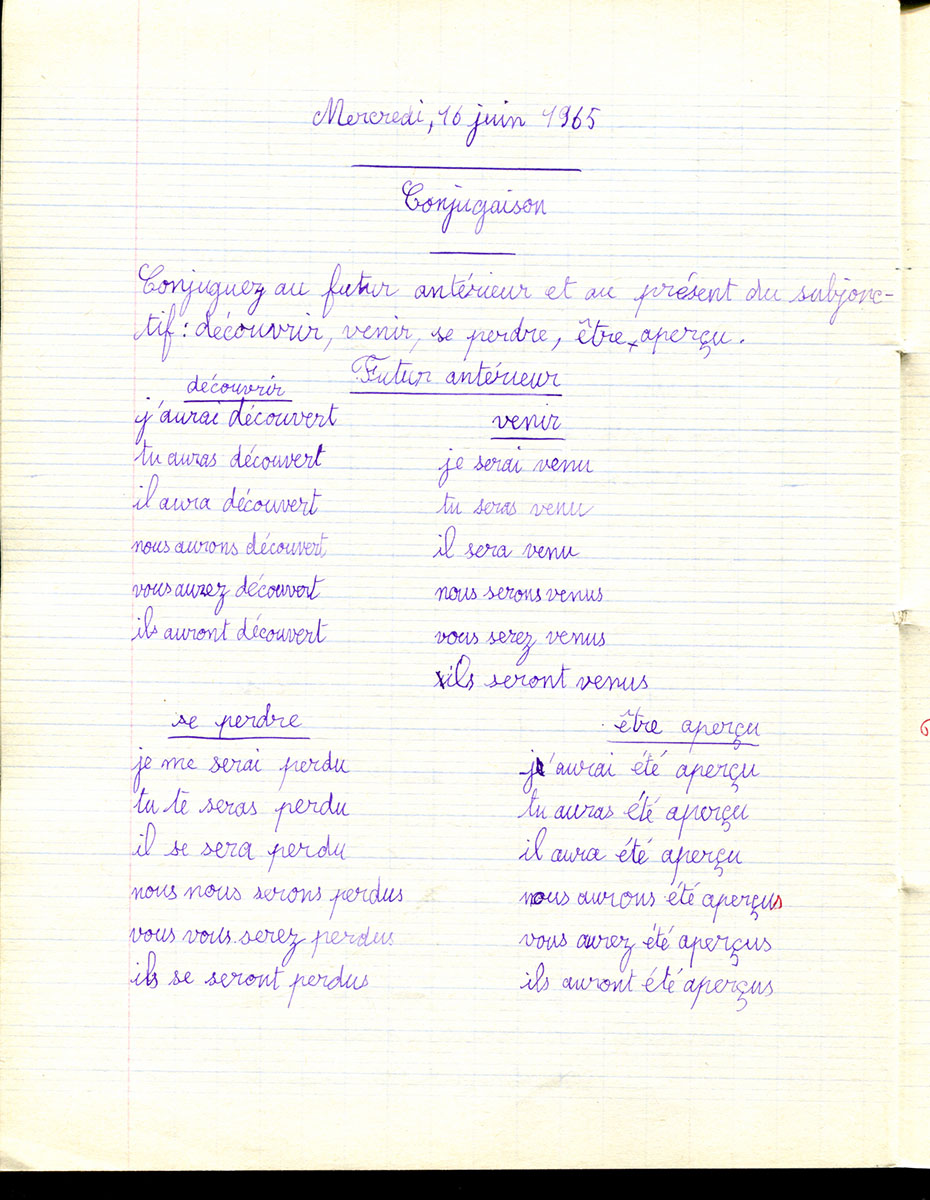 Mercredi, 16 juin 1965
Conjugaison
Conjuguez au futur antérieur et au présent du subjonc-
tif : découvrir, venir, se perdre, être aperçu.
Futur antérieur
découvrir
j'aurai découvert
tu auras découvert
il aura découvert
nous aurons découvert
vous aurez découvert
ils auront découvert
venir
je serai venu
tu seras venu
il sera venu
nous serons venus
vous serez venus
ils seront venus
se perdre
je me serai perdu
tu te seras perdu
il se sera perdu
nous nous serons perdus
vous vous serez perdus
ils se seront perdus
être aperçu
j'aurai été aperçu
tu auras été aperçu
il aura été aperçu
nous aurons été aperçus
vous aurez été aperçus
ils auront été aperçus